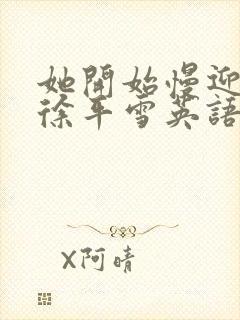 她開始慢迎
徐平雪英語
X阿晴